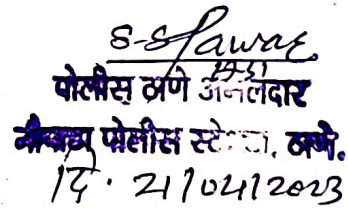 S-S Pawar
पोलीस ठाणे अंमलदार
पोलीस स्टेशन, ठाणे.
दि. 21/04/2023